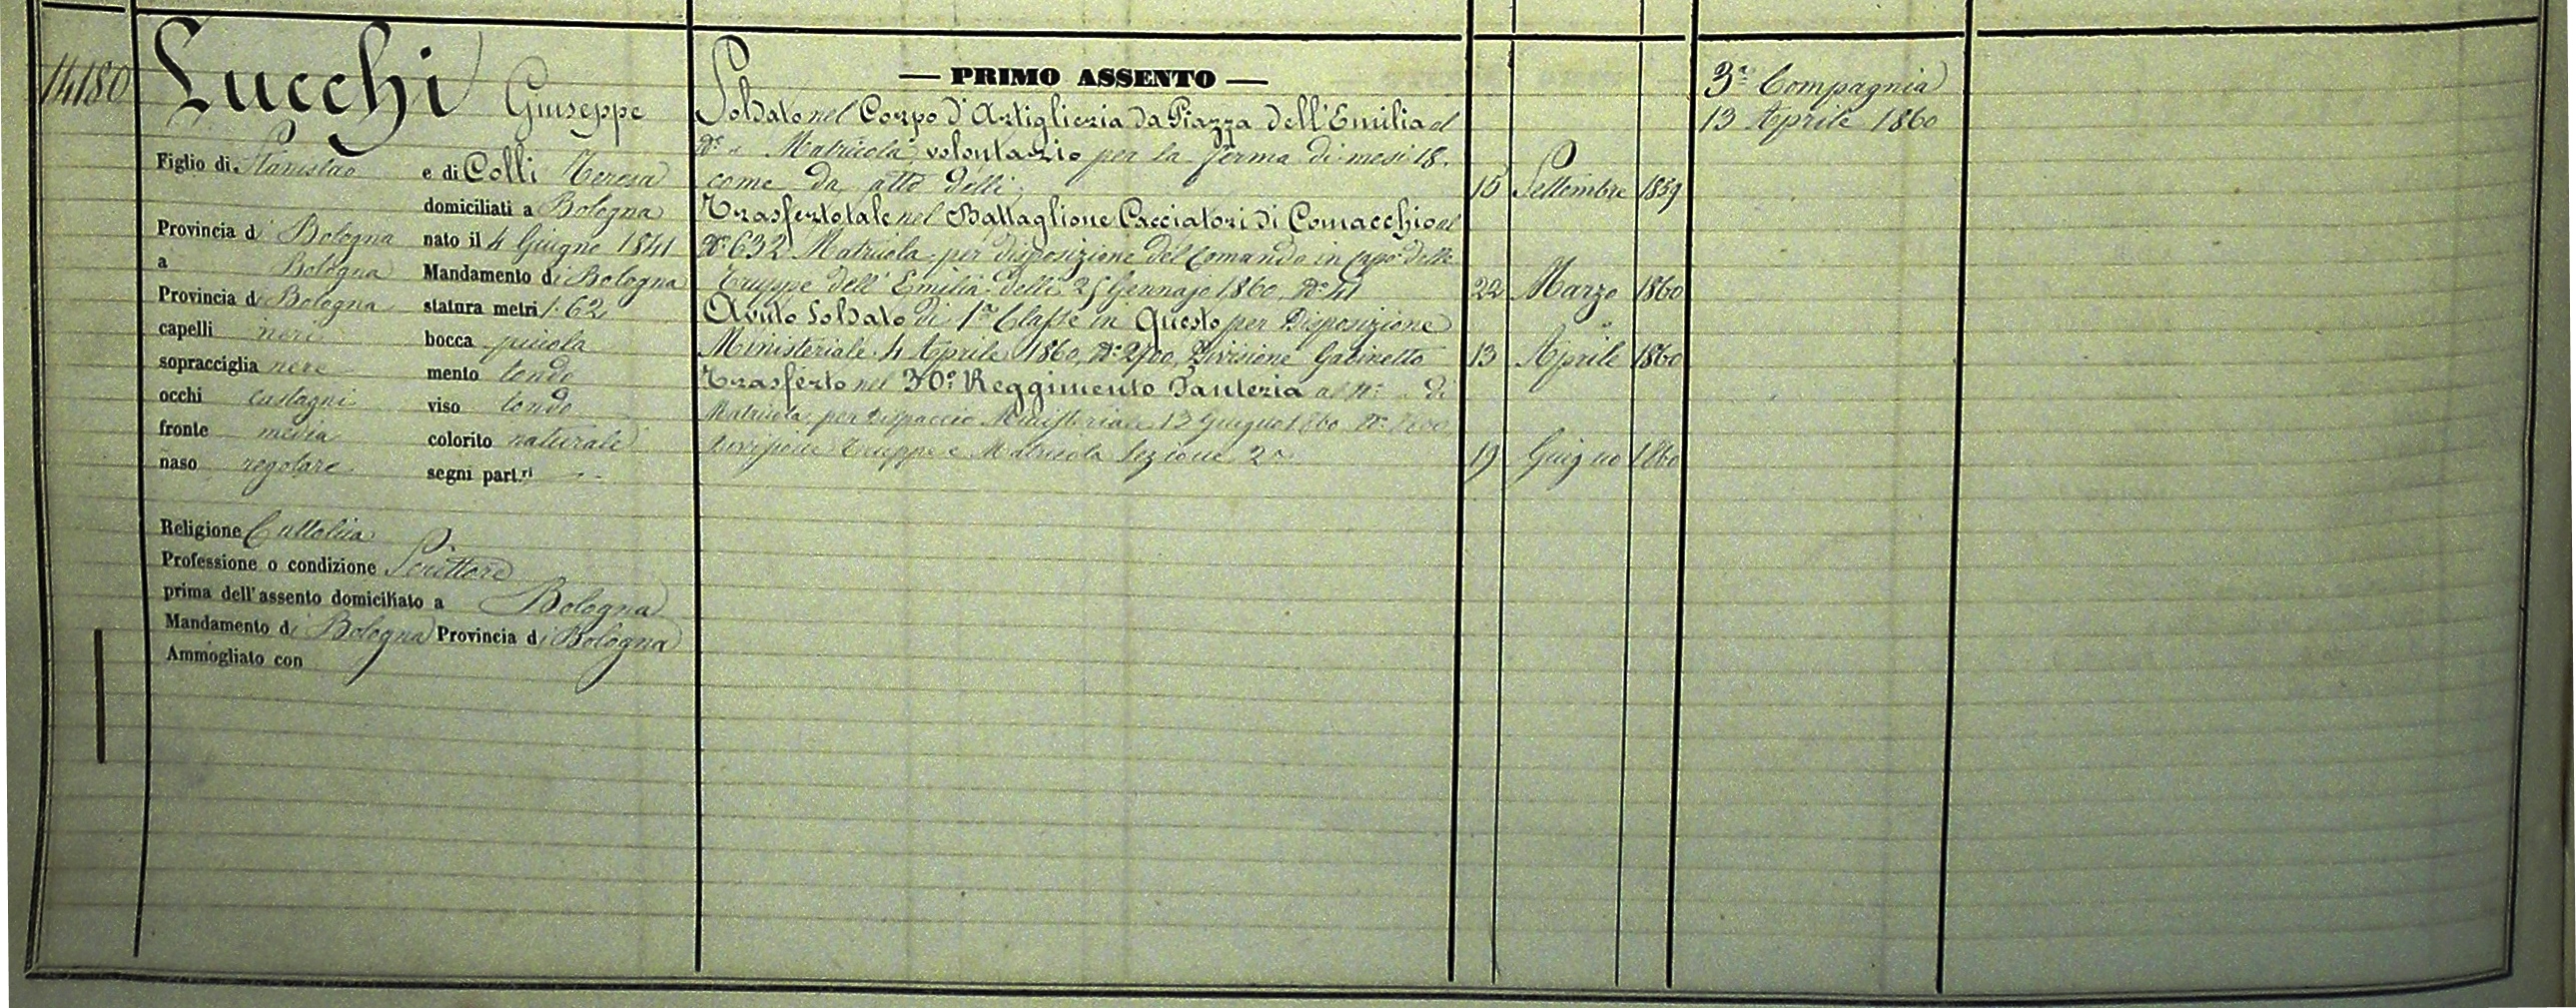 14180
Lucchi Giuseppe
Figlio di Stanislao e di Colli Teresa
domiciliati a Bologna
Provincia di Bologna nato il 4 Giugno 1841
a Bologna Mandamento di Bologna
Provincia di Bologna statura metri 1.62
capelli neri bocca picciola
sopracciglia nere mento tondo
occhi castagni viso tondo
fronte media colorito naturale
naso regolare segni part.ri
Religione Cattolica
Professione o condizione Scrittore
prima dell'assento domiciliato a Bologna
Mandamento di Bologna Provincia di Bologna
Ammogliato con
— PRIMO ASSENTO —
Soldato nel Corpo d'Artiglieria da Piazza dell'Emilia al
N.° „ Matricola, volontario per la ferma di mesi 18.
come da atto delli 15 Settembre 1859
Trasferto tale nel Battaglione Cacciatori di Comacchio al
N.° 632 Matricola per disposizione del Comando in capo delle
Truppe dell'Emilia delli 25 Gennajo 1860, N.° 41 22 Marzo 1860
Avuto Soldato di 1.a Classe in Questo per Disposizione
Ministeriale 4 Aprile 1860, N.° 2700, Divisione Gabinetto 13 Aprile 1860
Trasferto nel 30.° Reggimento Fanteria al N.° „ di
Matricola per dispaccio Ministeriale 12 Giugno 1860 N.°
Divisione Truppe e Matricola Sezione 2.a 19 Giugno 1860
3.a Compagnia
13 Aprile 1860